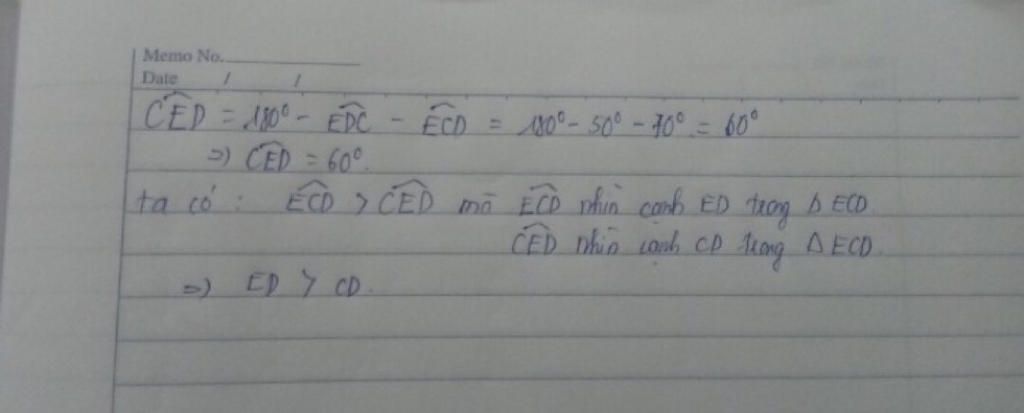 Memo No.
Date / /
CED̂ = 180° - EDĈ - ECD̂ = 180° - 50° - 70° = 60°
=> CED̂ = 60°.
ta có : ECD̂ > CED̂ mà ECD̂ nhìn cạnh ED trong Δ ECD.
CED̂ nhìn cạnh CD trong Δ ECD.
=> ED > CD.